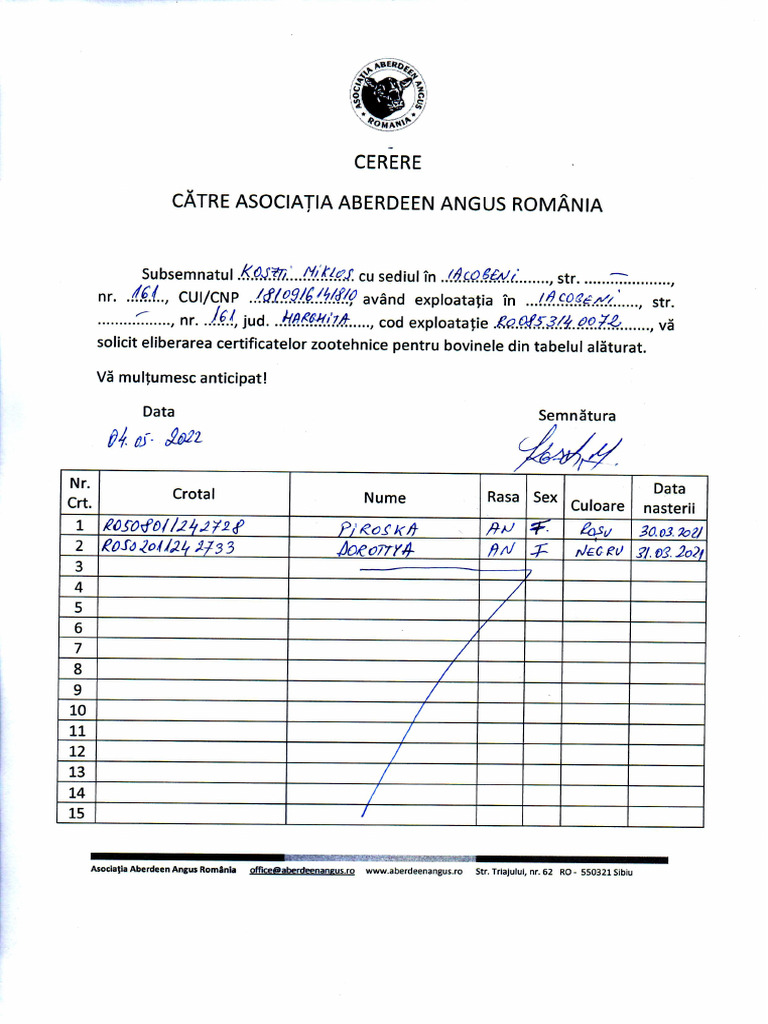 ASOCIAȚIA ABERDEEN ANGUS
• ROMANIA •
CERERE
CĂTRE ASOCIAȚIA ABERDEEN ANGUS ROMÂNIA
Subsemnatul KOSZTI MIKLOS cu sediul în IACOBENI, str. –,
nr. 161, CUI/CNP 1810916141810, având exploatația în IACOBENI, str.
–, nr. 161, jud. HARGHITA, cod exploatație RO0853140072, vă
solicit eliberarea certificatelor zootehnice pentru bovinele din tabelul alăturat.
Vă mulțumesc anticipat!
Data Semnătura
04.05.2022
Nr. Crt. Crotal Nume Rasa Sex Culoare Data nasterii
1 RO508011242728 PIROSKA AN F ROȘU 30.03.2021
2 RO502011242733 DOROTTYA AN F NEGRU 31.03.2021
3
4
5
6
7
8
9
10
11
12
13
14
15
Asociația Aberdeen Angus România office@aberdeenangus.ro www.aberdeenangus.ro Str. Triajului, nr. 62 RO - 550321 Sibiu